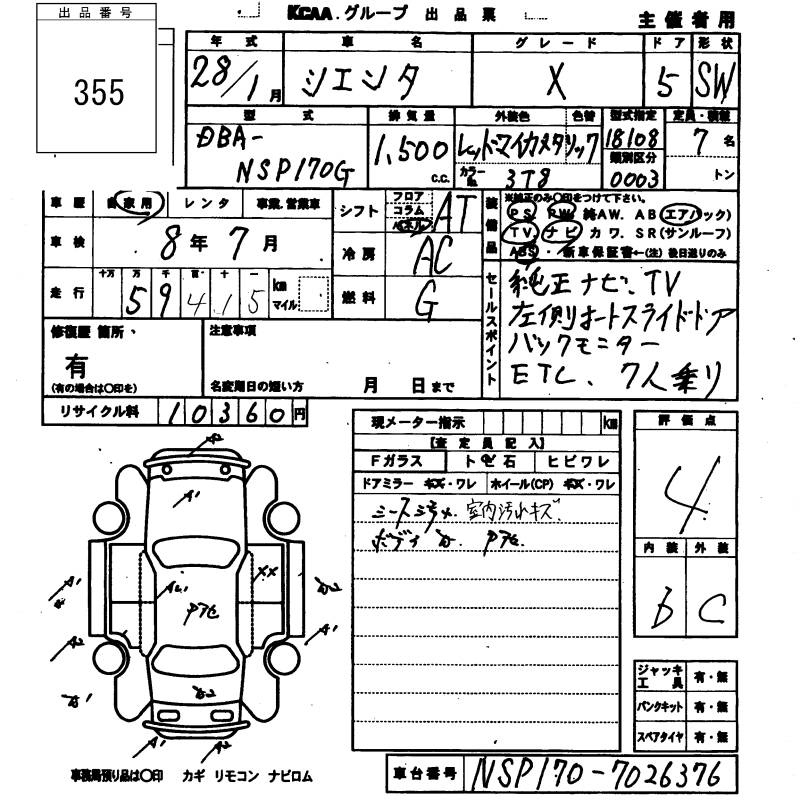 出品番号
355
KCAA.グループ 出品票
主催者用
年式 車名 グレード ドア 形状
28/1月 シエンタ X 5 SW
型式 排気量 外装色 色替 型式指定 定員・積載
DBA-
NSP170G
1,500 c.c.
レッドマイカメタリック
カラーNo. 3T8
18108
類別区分
0003
7名
トン
車歴 自家用 レンタ 事業.営業車
車検 8年7月
走行 十万 万 千 百 十 一
59415 km マイル
シフト フロア コラム パネル AT
冷房 AC
燃料 G
装備品
※純正のみ○印をつけて下さい。
PS PW 純AW. AB(エアバック)
TV. ナビ カワ. SR(サンルーフ)
ABS・新車保証書←(注)後日送りのみ
セールスポイント
純正ナビ.TV
左側オートスライドドア
バックモニター
ETC. 7人乗り
修復歴 箇所・
有
(有の場合は○印を)
注意事項
名変期日の短い方 月 日まで
リサイクル料 10360円
現メーター指示 km
【査定員記入】
Fガラス トビ石 ヒビワレ
ドアミラー キズ・ワレ ホイール(CP) キズ・ワレ
シートヨゴレ. 室内汚れキズ
評価点
4
内装 外装
B C
ジャッキ工具 有・無
パンクキット 有・無
スペアタイヤ 有・無
A2
A1
A1
XX
A2
A1
A1
A2
事務局預り品は○印 カギ リモコン ナビロム
車台番号 NSP170-7026376